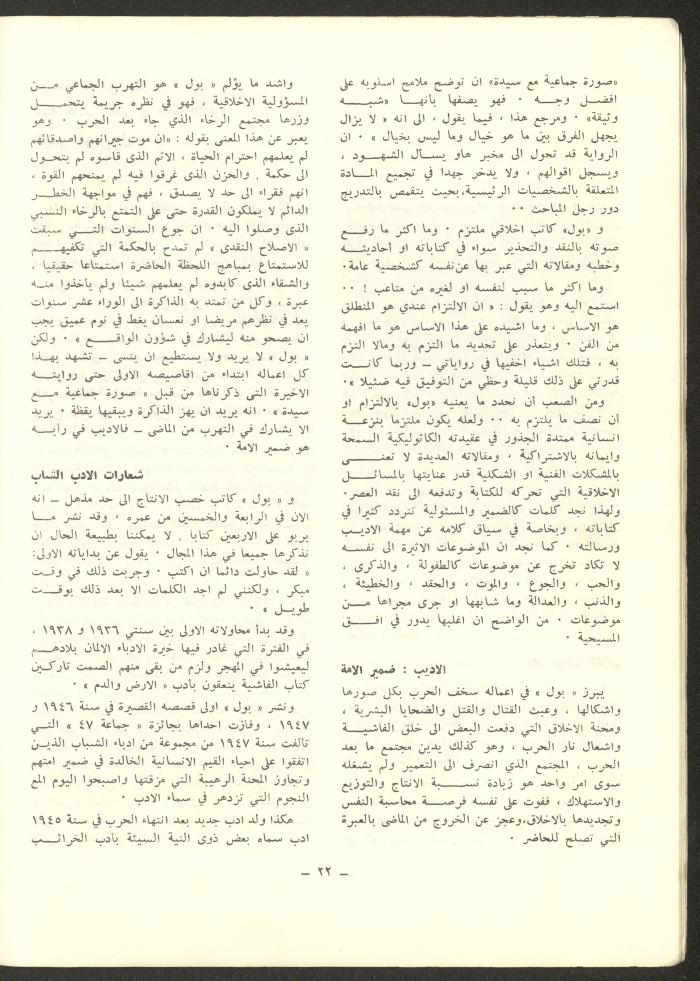 «صورة جماعية مع سيدة» ان توضح ملامح اسلوبه على
افضل وجه ٠ فهو يصفها بأنها «شبه
وثيقة» ٠ ومرجع هذا ، فيما يقول ، الى انه « لا يزال
يجهل الفرق بين ما هو خيال وما ليس بخيال » ٠ ان
الرواية قد تحول الى مخبر هاو يسأل الشهود ،
ويسجل اقوالهم ، ولا يدخر جهدا في تجميع المادة
المتعلقة بالشخصيات الرئيسية،بحيث يتقمص بالتدريج
دور رجل المباحث ٠٠
و «بول» كاتب اخلاقي ملتزم ٠ وما اكثر ما رفع
صوته بالنقد والتحذير سواء في كتاباته او أحاديثه
وخطبه ومقالاته التي عبر بها عن نفسه كشخصية عامة٠
وما اكثر ما سبب لنفسه او لغيره من متاعب ! ٠٠
استمع اليه وهو يقول : « ان الالتزام عندي هو المنطلق
هو الاساس ، وما اشيده على هذا الاساس هو ما افهمه
من الفن ٠ ويتعذر على تحديد ما التزم به ومالا التزم
به ، فتلك اشياء اخفيها في رواياتي ــ وربما كانت
قدرتي على ذلك قليلة وحظي من التوفيق فيه ضئيلا »٠
ومن الصعب أن نحدد ما يعنيه «بول» بالالتزام او
أن نصف ما يلتزم به ٠٠ ولعله يكون ملتزما بنزعة
انسانية ممتدة الجذور في عقيدته الكاثوليكية السمحة
وايمانه بالاشتراكية ، ومقالاته العديدة لا تعنى
بالمشكلات الفنية او الشكلية قدر عنايتها بالمسائل
الاخلاقية التي تحركه للكتابة وتدفعه الى نقد العصر٠
ولهذا نجد كلمات كالضمير والمسئولية تتردد كثيرا في
كتاباته ، وبخاصة في سياق كلامه عن مهمة الاديب
ورسالته ٠ كما نجد ان الموضوعات الاثيرة الى نفسه
لا تكاد تخرج عن موضوعات كالطفولة ، والذكرى ،
والحب ، والجوع ، والموت ، والحقد ، والخطيئة ،
والذنب ، والعدالة وما شابهها او جرى مجراها من
موضوعات ٠ من الواضح ان اغلبها يدور في افق
المسيحية ٠
الاديب : ضمير الامة
يبرز « بول » في اعماله سخف الحرب بكل صورها
واشكالها ، وعبث القتال والقتل والضحايا البشرية ،
ومحنة الاخلاق التي دفعت البعض الى خلق الفاشية
واشعال نار الحرب ، وهو كذلك يدين مجتمع ما بعد
الحرب ، المجتمع الذي انصرف الى التعمير ولم يشغله
سوى امر واحد هو زيادة نسبة الانتاج والتوزيع
والاستهلاك ، ففوت على نفسه فرصة محاسبة النفس
وتجديدها بالاخلاق،وعجز عن الخروج من الماضى بالعبرة
التي تصلح للحاضر ٠
واشد ما يؤلم « بول » هو التهرب الجماعي من
المسؤولية الاخلاقية ، فهو في نظره جريمة يتحمل
وزرها مجتمع الرخاء الذي جاء بعد الحرب ٠ وهو
يعبر عن هذا المعنى بقوله : «ان موت جيرانهم واصدقائهم
لم يعلمهم احترام الحياة ، الاثم الذى قاسوه لم يتحول
الى حكمة ٬ والحزن الذى غرقوا فيه لم يمنحهم القوة ،
انهم فقراء الى حد لا يصدق ، فهم في مواجهة الخطر
الدائم لا يملكون القدرة حتى على التمتع بالرخاء النسبي
الذى وصلوا اليه ٠ ان جوع السنوات التي سبقت
« الاصلاح النقدى » لم تمدح بالحكمة التي تكفيهم
للاستمتاع بمباهج اللحظة الحاضرة استمتاعا حقيقيا ،
والشقاء الذى كابدوه لم يعلمهم شيئا ولم يأخذوا منه
عبرة ، وكل من تمتد به الذاكرة الى الوراء عشر سنوات
يعد في نظرهم مريضا او نعسان يغط في نوم عميق يجب
ان يصحو منه ليشارك في شؤون الواقع » ٠ ولكن
« بول » لا يريد ولا يستطيع ان ينسى ــ تشهد بهذا
كل اعماله ابتداء من اقاصيصه الاولى حتى روايته
الاخيرة التى ذكرناها من قبل « صورة جماعية مع
سيدة » ٠ انه يريد ان يهز الذاكرة ويبقيها يقظة ٠ يريد
الا يشارك في التهرب من الماضى ــ فالاديب في رأيه
هو ضمير الامة ٠
شعارات الادب الشاب
و « بول » كاتب خصب الانتاج الى حد مذهل ــ انه
الان في الرابعة والخمسين من عمره ، وقد نشر ما
يربو على الاربعين كتابا ٬ لا يمكننا بطبيعة الحال ان
نذكرها جميعا في هذا المجال ٠ يقول عن بداياته الاولى:
« لقد حاولت دائما ان اكتب ٠ وجربت ذلك في وقت
مبكر ، ولكنني لم اجد الكلمات الا بعد ذلك بوقت
طويل » ٠
وقد بدأ محاولاته الاولى بين سنتي ١٩٣٦ و ١٩٣٨ ،
في الفترة التي غادر فيها خيرة الادباء الالمان بلادهم
ليعيشوا في المهجر ولزم من بقى منهم الصمت تاركين
كتاب الفاشية ينعقون بأدب « الارض والدم » ٠
ونشر « بول » اولى قصصه القصيرة في سنة ١٩٤٦ و
١٩٤٧ ، وفازت احداها بجائزة « جماعة ٤٧ » التي
تألفت سنة ١٩٤٧ من مجموعة من ادباء الشباب الذين
اتفقوا على احياء القيم الانسانية الخالدة في ضمير امتهم
وتجاوز المحنة الرهيبة التي مزقتها واصبحوا اليوم المع
النجوم التي تزدهر في سماء الادب ٠
هكذا ولد ادب جديد بعد انتهاء الحرب في سنة ١٩٤٥
ادب سماه بعض ذوى النية السيئة بأدب الخرائب
ــ ٢٢ ــ